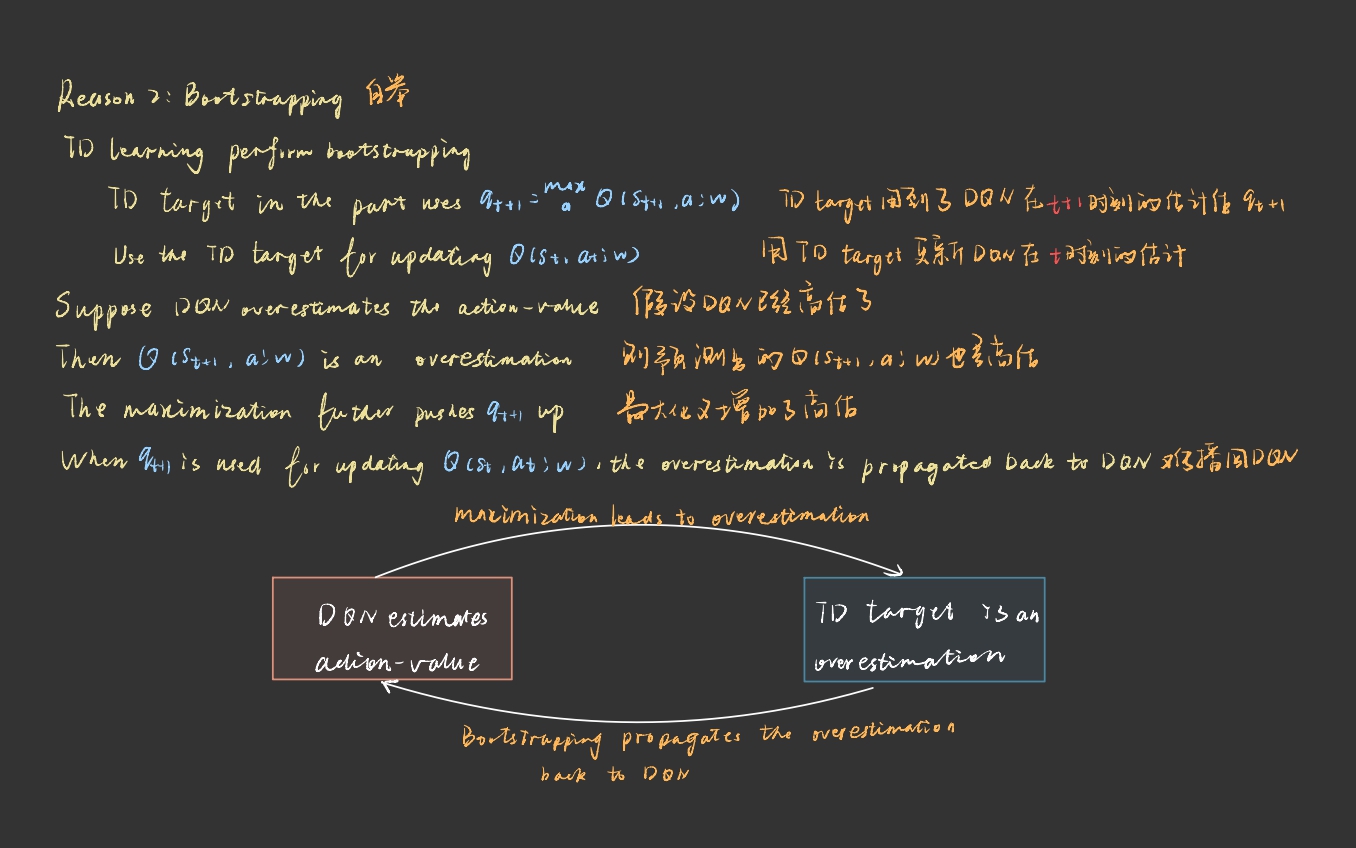 Reason 2: Bootstrapping 自举
TD learning perform bootstrapping
TD target in the part uses q_{t+1} = max_a Q(s_{t+1}, a; w) TD target 用到了 DQN 在 t+1 时刻的估计值 q_{t+1}
Use the TD target for updating Q(s_t, a_t; w) 用 TD target 更新 DQN 在 t 时刻的估计
Suppose DQN overestimates the action-value 假设DQN已经高估了
Then Q(s_{t+1}, a; w) is an overestimation 则预测出的Q(s_{t+1}, a; w)也是高估
The maximization futher pushes q_{t+1} up 最大化又增加了高估
When q_{t+1} is used for updating Q(s_t, a_t; w), the overestimation is propagated back to DQN 播回DQN
maximization leads to overestimation
DQN estimates
action-value
TD target is an
overestimation
Bootstrapping propagates the overestimation
back to DQN